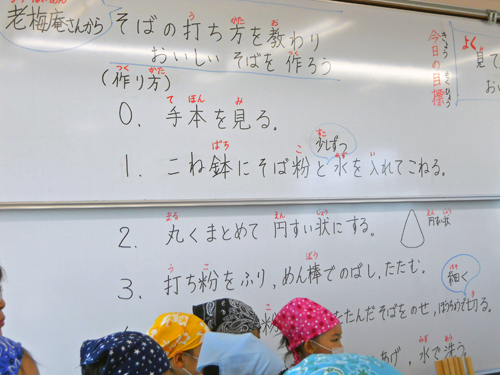 老梅庵さんから
そばの打ち方を教わり
おいしいそばを作ろう
今日の目標
よく
見て
おい
(作り方)
0. 手本を見る。
少しずつ
1. こね鉢にそば粉と水を入れてこねる。
2. 丸くまとめて円すい状にする。
円すい状
3. 打ち粉をふり,めん棒でのばし,たたむ。
細く
粉 たたんだそばをのせ,ほうちょうで切る。
あげ,水で洗う。